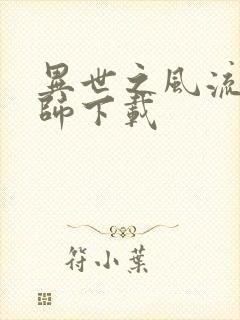 異世之風流
師下載
符小葉